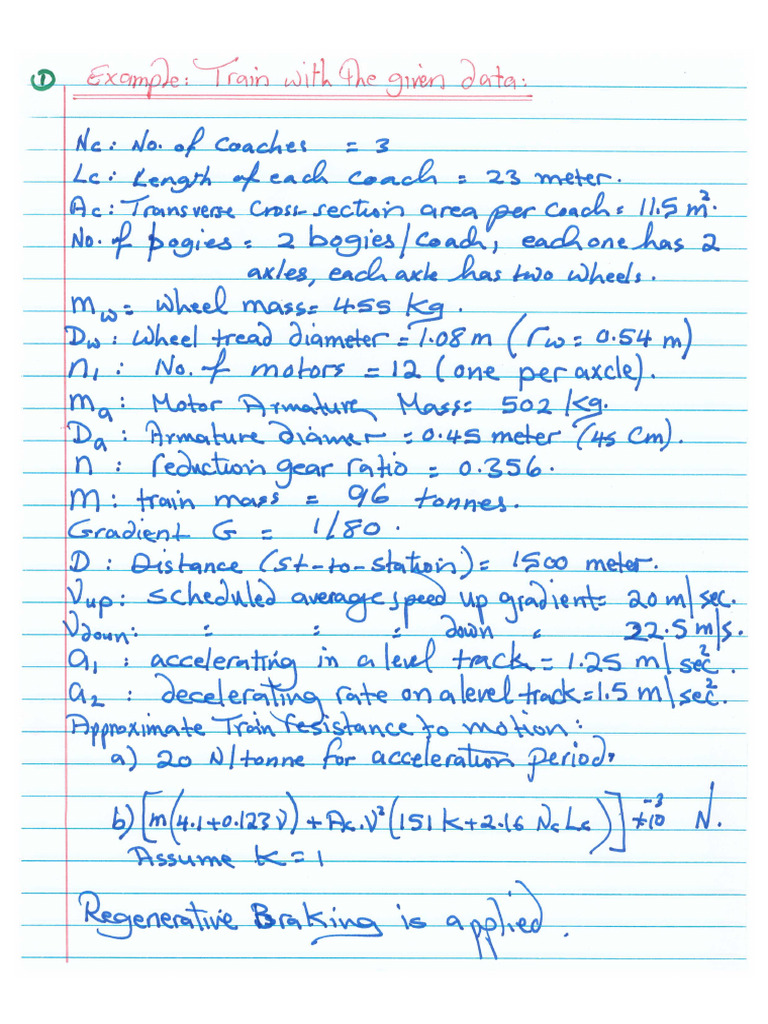 ① Example: Train with the given data:
Nc: No. of Coaches = 3
Lc: Length of each coach = 23 meter.
Ac: Transverse Cross-section area per coach = 11.5 m².
No. of bogies = 2 bogies/coach, each one has 2
axles, each axle has two wheels.
mw = wheel mass = 455 Kg.
Dw: Wheel tread diameter = 1.08 m (rw = 0.54 m)
n₁: No. of motors = 12 (one per axcle).
ma: Motor Armature Mass = 502 Kg.
Da: Armature diamer = 0.45 meter (45 Cm).
n: reduction gear ratio = 0.356.
M: train mass = 96 tonnes.
Gradient G = 1/80.
D: Distance (st-to-station) = 1500 meter.
Vup: scheduled average speed up gradient = 20 m/sec.
Vdown: " " " down " 22.5 m/s.
a₁: accelerating in a level track = 1.25 m/sec².
a₂: decelerating rate on a level track = 1.5 m/sec².
Approximate Train resistance to motion:
a) 20 N/tonne for acceleration period.
b) [m(4.1+0.123 V) + Ac.V²(151 K+2.16 Nc Lc)] *10⁻³ N.
Assume K = 1
Regenerative Braking is applied.